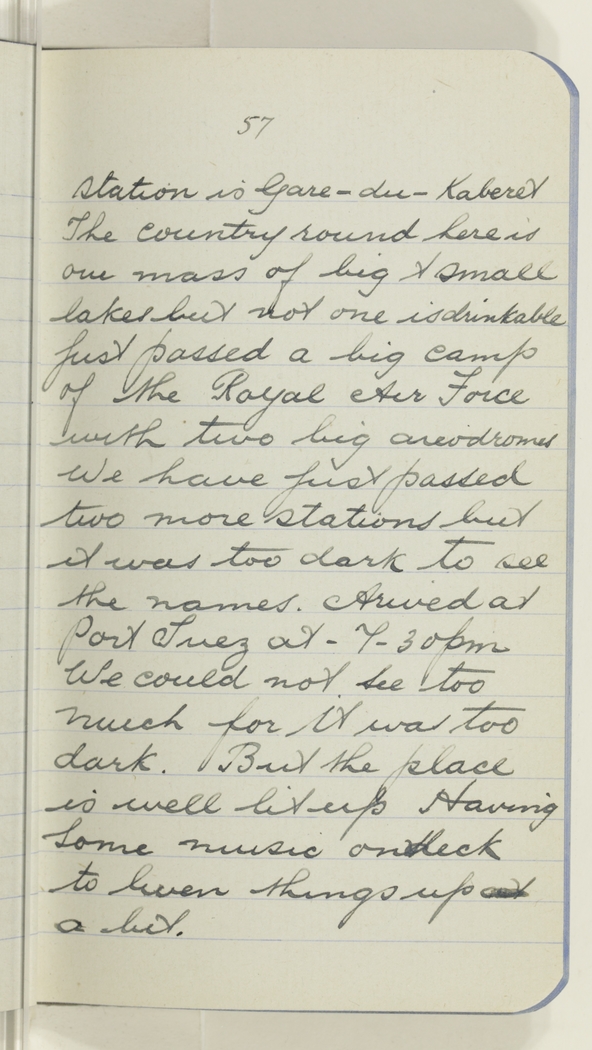 57
station is Gare-du-Kaberet
The country round here is
one mass of big & small
lakes but not one is drinkable
Just passed a big camp
of the Royal Air Force
with two big areodromes
We have just passed
two more stations but
it was too dark to see
the names. Arived at
Port Suez at - 7-30pm
We could not see too
much for it was too
dark. But the place
is well lit up Having
Some music on deck
to liven things up
a bit.